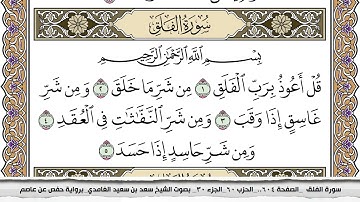 سُورَةُ الفَلَقِ
بِسْمِ ٱللَّهِ ٱلرَّحْمَٰنِ ٱلرَّحِيمِ
قُلْ أَعُوذُ بِرَبِّ ٱلْفَلَقِ ١ مِن شَرِّ مَا خَلَقَ ٢ وَمِن شَرِّ
غَاسِقٍ إِذَا وَقَبَ ٣ وَمِن شَرِّ ٱلنَّفَّٰثَٰتِ فِى ٱلْعُقَدِ ٤
وَمِن شَرِّ حَاسِدٍ إِذَا حَسَدَ ٥
سورة الفلق _الصفحة ٦٠٤_ الحزب ٦٠_الجزء ٣٠_ بصوت الشيخ سعد بن سعيد الغامدي_برواية حفص عن عاصم